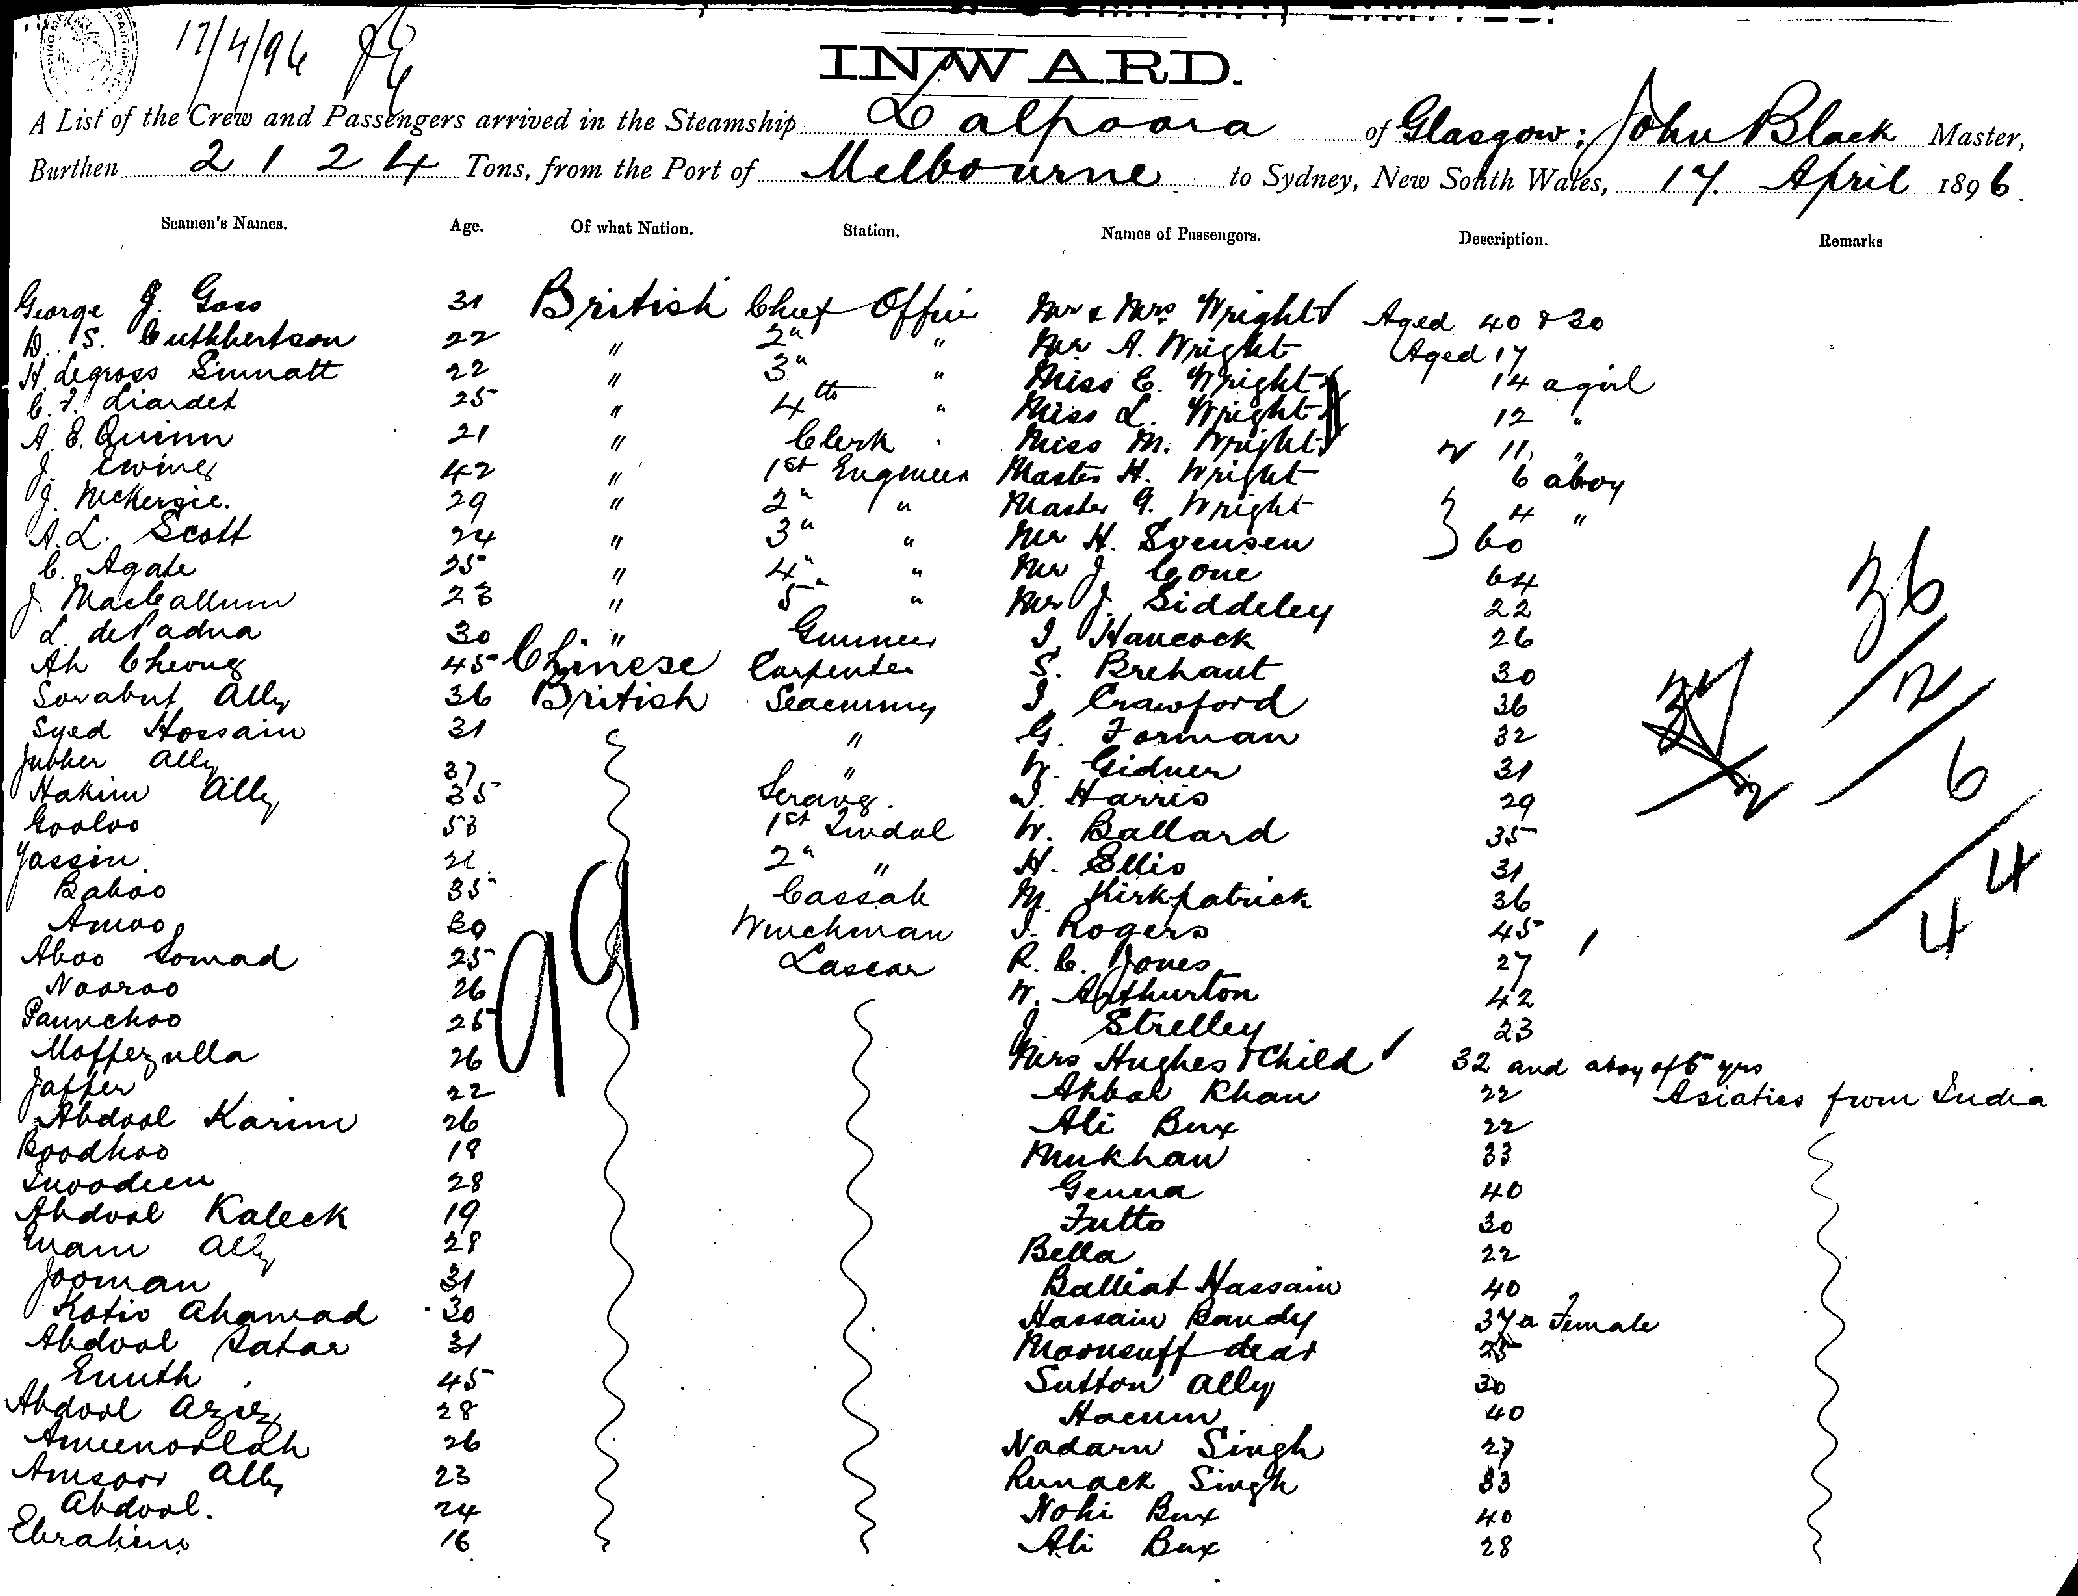 17/4/96
INWARD.
A List of the Crew and Passengers arrived in the Steamship Lalpoora of Glasgow; John Black Master,
Burthen 2124 Tons, from the Port of Melbourne to Sydney, New South Wales, 17. April 1896.
Seamen's Names. Age. Of what Nation. Station. Names of Passengers. Description. Remarks
George J. Goss 31 British Chief Officer Mr & Mrs Wright Aged 40 & 30
D. S. Cuthbertson 22 " 2" " Mr A. Wright Aged 17
H. Legross Sinnatt 22 " 3" " Miss E. Wright 14 a girl
C. F. Liardet 25 " 4th " Miss L. Wright 12 "
A. E. Quinn 21 " Clerk Miss M. Wright 11 "
J. Ewing 42 " 1st Engineer Master H. Wright 6 a boy
J. McKenzie. 29 " 2" " Master G. Wright 4 "
A. L. Scott 24 " 3" " Mr H. Svensen 60
C. Agate 25 " 4" " Mr J. Cone 64
J. MacCallum 23 " 5" " Mr J. Siddeley 22
L. de Padua 30 " Gunner J. Hancock 26
Ah Cheong 45 Chinese Carpenter S. Brehaut 30
Sorabut Ally 36 British Seacunny J. Crawford 36
Syed Hossain 31 " G. Forman 32
Jubber Ally 37 " W. Gidner 31
Hakim Ally 35 Serang. J. Harris 29
Gooloo 53 1st Tindal W. Ballard 35
Yassin. 2" " H. Ellis 31
Baboo 35 Cassab M. Kirkpatrick 36
Amoo 30 Winchman J. Rogers 45
Aboo Somad 25 Lascar R. C. Jones 27
Nooroo 26 W. Arthurton 42
Paunchoo 25 J. Strelley 23
Moffezulla 26 Mrs Hughes & Child 32 and a boy of 5 yrs
Jaffer 22 Akbal Khan 22 Asiatics from India
Abdool Karim 26 Ali Bux 22
Boodhoo 19 Mukhan 33
28 Genna 40
Abdool Kaleck 19 Futto 30
Emam Ally 28 Bella 22
Jooman 31 Balliat Hassain 40
Kotio Ahamad 30 Hassain Bandy 37 a Female
Abdool Satar 31 Moonsuff 25
45 Sutton Ally 30
Abdool Aziz 28 40
Ameenoollah 26 Nadarn Singh 27
Amsoor Ally 23 Runack Singh 33
Abdool. 24 Nohi Bux 40
Ebrahim 16 Ali Bux 28
99
36/2/6/4
4